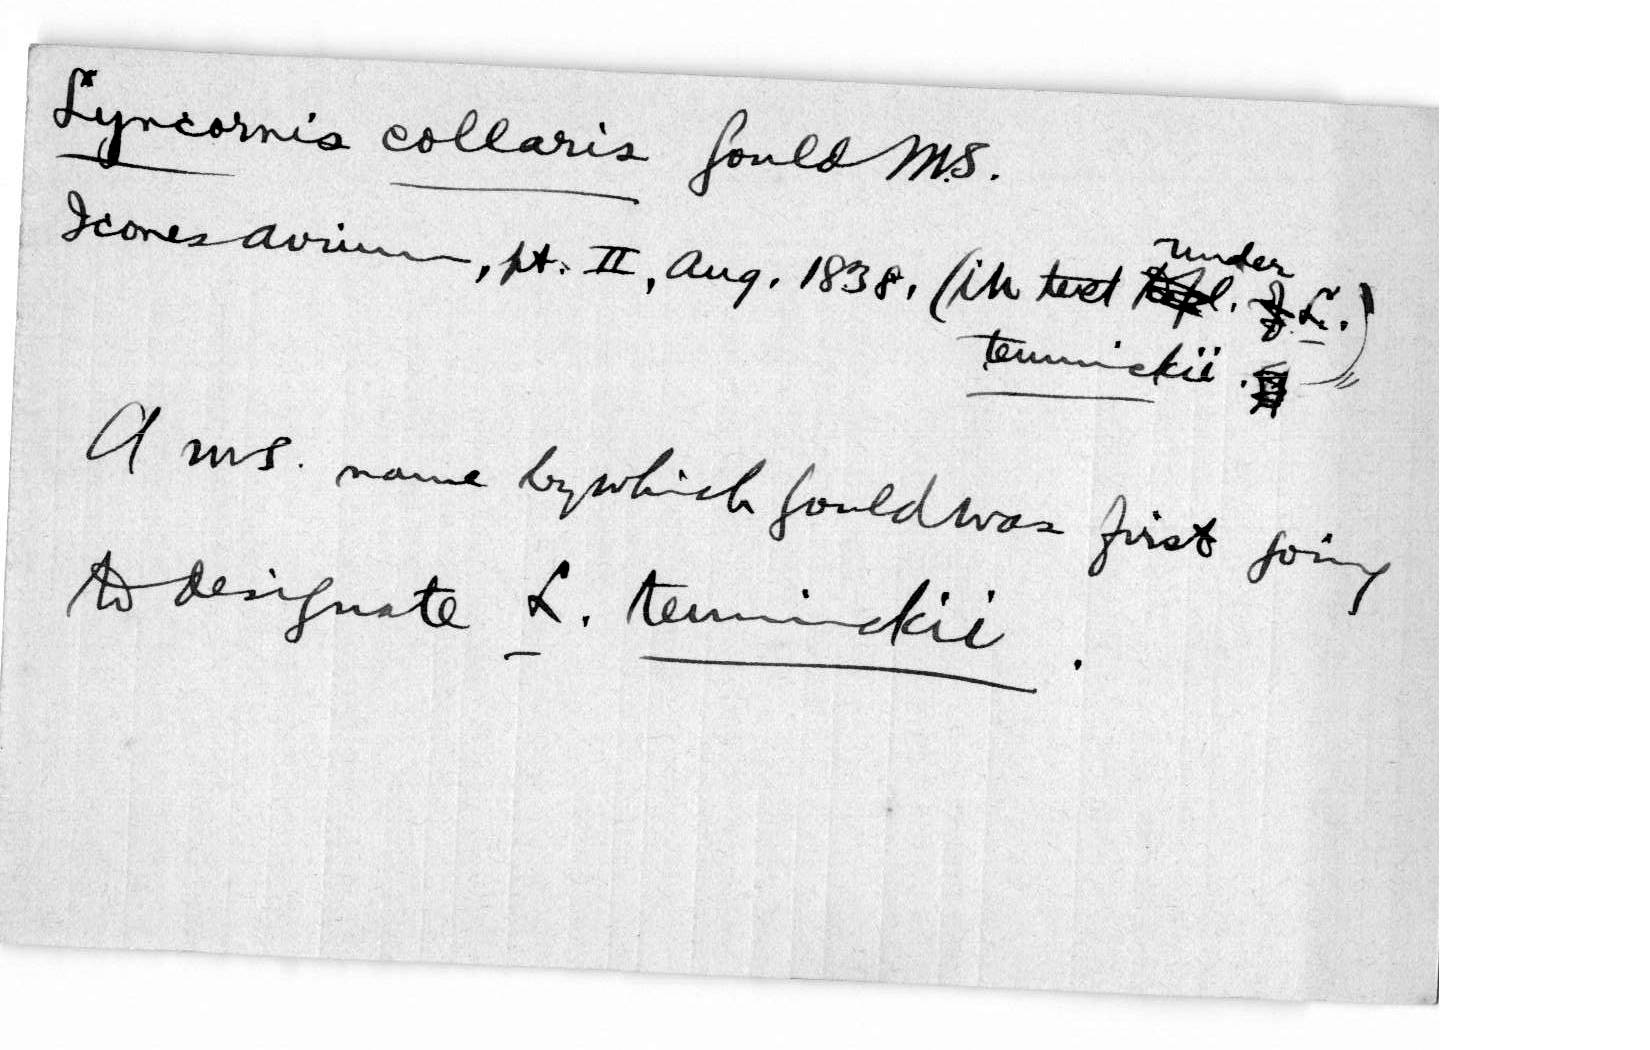 Lyncornis collaris Gould MS.
Icones avium, pt. II, Aug. 1838. (in text under L.)
temminckii.
A ms. name by which Gould was first going
to designate L. temminckii.